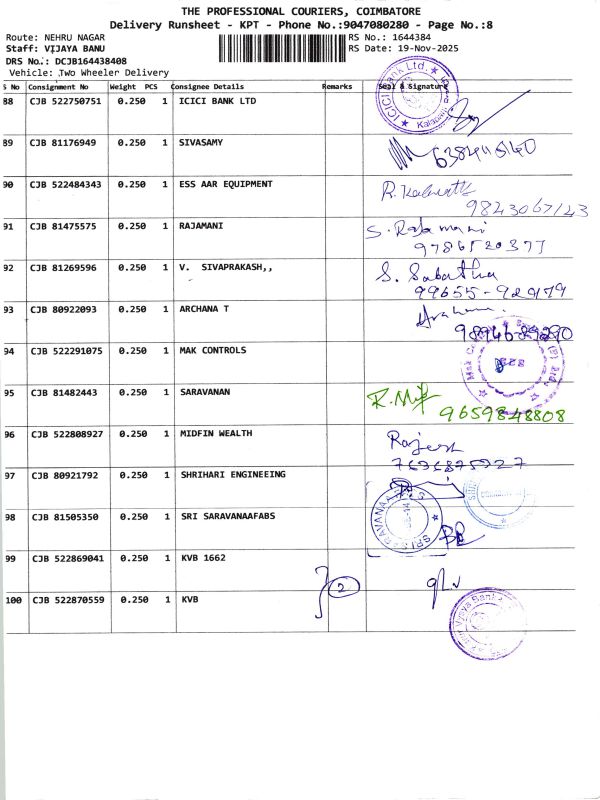 THE PROFESSIONAL COURIERS, COIMBATORE
Delivery Runsheet - KPT - Phone No.:9047080280 - Page No.:8
Route: NEHRU NAGAR RS No.: 1644384
Staff: VIJAYA BANU RS Date: 19-Nov-2025
DRS No.: DCJB164438408
Vehicle: Two Wheeler Delivery
S No Consignment No Weight PCS Consignee Details Remarks Seal & Signature
88 CJB 522750751 0.250 1 ICICI BANK LTD
ICICI Bank Ltd.
89 CJB 81176949 0.250 1 SIVASAMY
90 CJB 522484343 0.250 1 ESS AAR EQUIPMENT
9843067143
91 CJB 81475575 0.250 1 RAJAMANI S. Rajamani
9786520377
92 CJB 81269596 0.250 1 V. SIVAPRAKASH,, S. Sabatha
99655-92979
93 CJB 80922093 0.250 1 ARCHANA T
94 CJB 522291075 0.250 1 MAK CONTROLS
95 CJB 81482443 0.250 1 SARAVANAN
9659848808
96 CJB 522808927 0.250 1 MIDFIN WEALTH Rajesh
7696875927
97 CJB 80921792 0.250 1 SHRIHARI ENGINEEING
98 CJB 81505350 0.250 1 SRI SARAVANAAFABS
99 CJB 522869041 0.250 1 KVB 1662
2
100 CJB 522870559 0.250 1 KVB